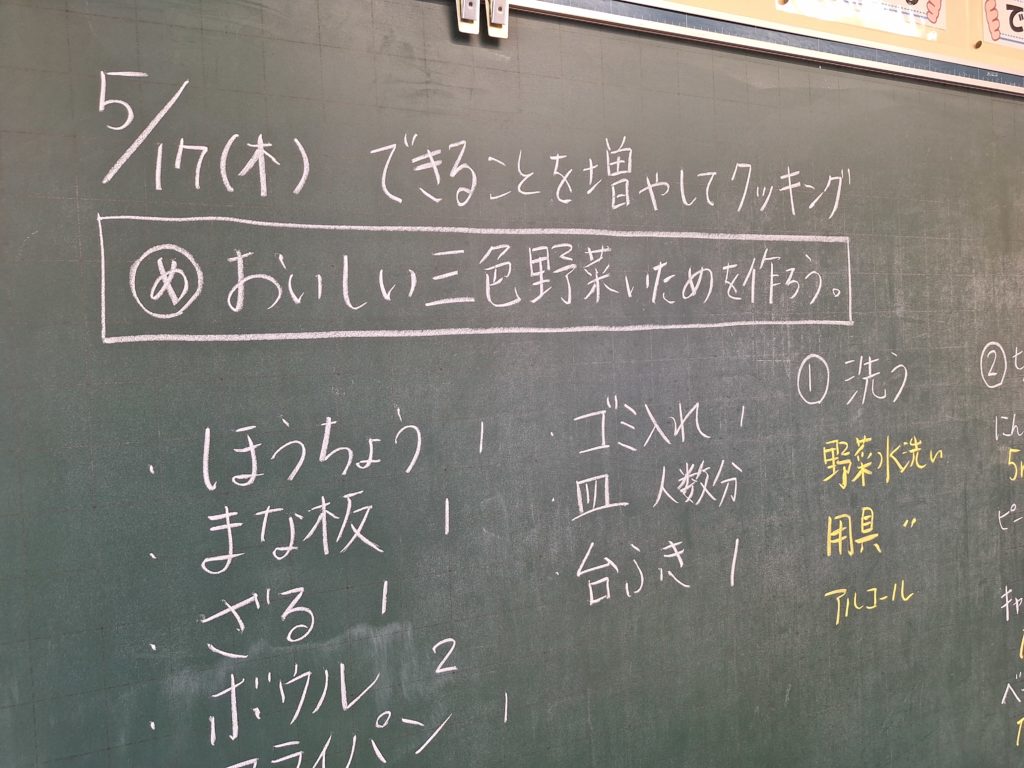 5/17(木) できることを増やしてクッキング
め おいしい三色野菜いためを作ろう。
・ほうちょう 1
・まな板 1
・ざる 1
・ボウル 2
フライパン 1
・ゴミ入れ 1
・皿 人数分
・台ふき 1
① 洗う
野菜水洗い
用具 〃
アルコール
②
にん
5m
ピー
キャ
ベ
で